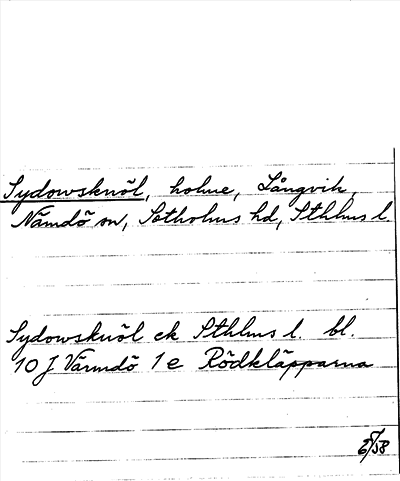 Sydowsknöl, holme, Långvik,
Nämdö sn, Sotholms hd, Sthlms l
Sydowsknöl ek Sthlms l. bl.
10 J Värmdö 1 e Rödkläpparna
/58